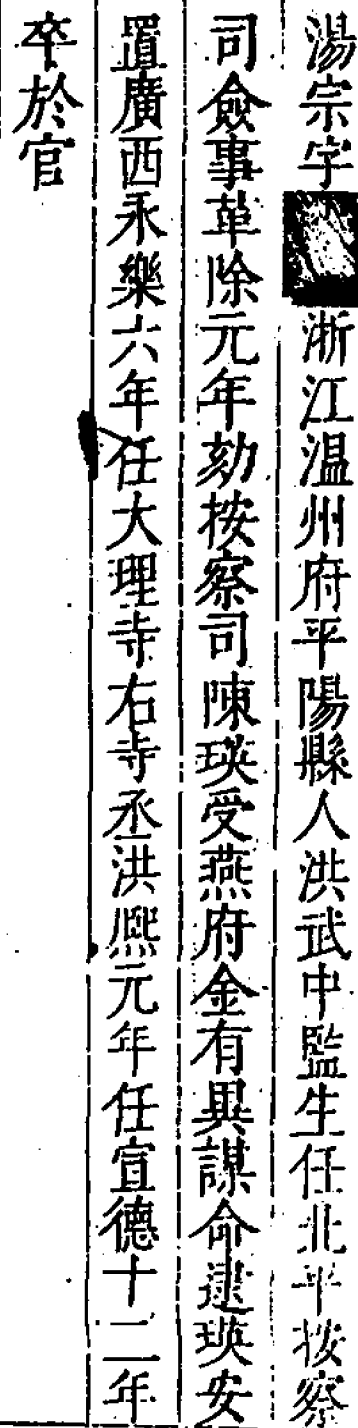 湯宗字浙江温州府平陽縣人洪武中監生任北平按察
司僉事革除元年劾按察司陳瑛受燕府金有異謀命逮瑛安
置廣西永樂六年任大理寺右寺丞洪熙元年任宣德十二年
卒於官